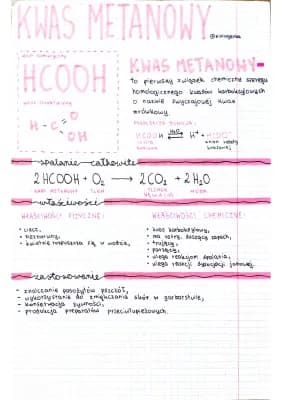 KWAS METANOWY
wzór sumaryczny
HCOOH
wzór strukturalny
H-C
O
OH
KWAS METANOWY-
to pierwszy związek chemiczny szeregu
homologicznego kwasów karboksylowych
o nazwie zwyczajowej kwas
mrówkowy.
HCOOH H₂O → H⁺ + HCOO⁻
spalanie całkowite
2HCOOH + O₂ → 2CO₂ + 2H₂O
KWAS METANOWY TLEN TLENEK WĘGLA(IV) WODA
właściwości
WŁAŚCIWOŚCI FIZYCZNE:
• ciecz,
• bezbarwny,
• świetnie rozpuszcza się w wodzie,
WŁAŚCIWOŚCI CHEMICZNE:
• kwas karboksylowy,
• ma ostry, duszący zapach,
• trujący,
• parzący,
• ulega reakcjom spalania,
• ulega reakcji dysocjacji jonowej.
zastosowanie
- zwalczanie pasożytów pszczół,
- wykorzystanie do zmiękczania skór w garbarstwie,
- konserwacja żywności,
- produkcja preparatów przeciwłupieżowych.